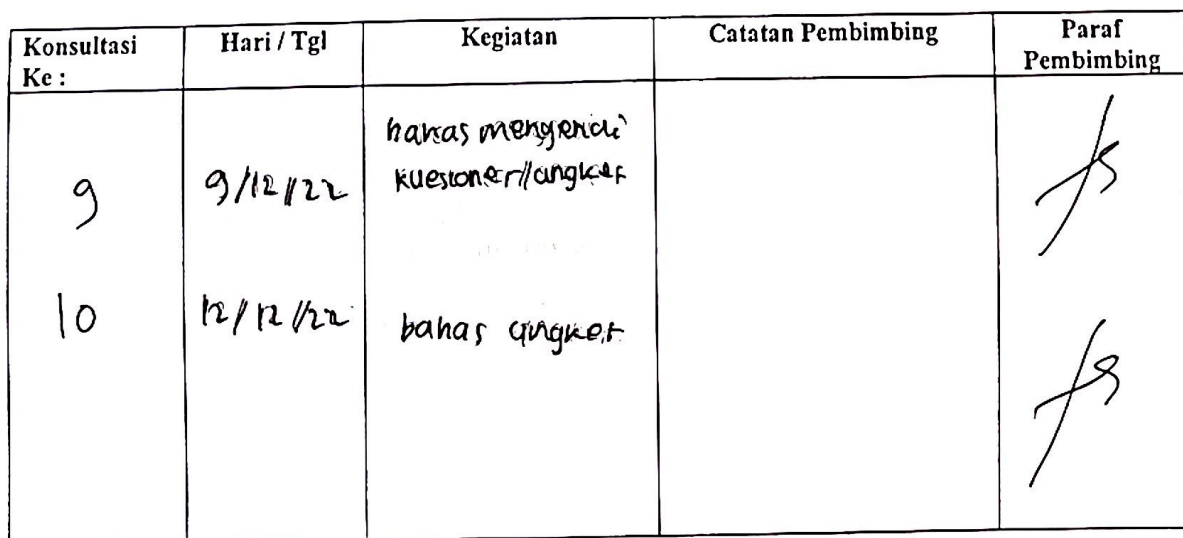 Konsultasi Ke :
Hari / Tgl
Kegiatan
Catatan Pembimbing
Paraf Pembimbing
9
9/12/22
bahas mengenai
kuesioner/angket
10
12/12/22
bahas angket